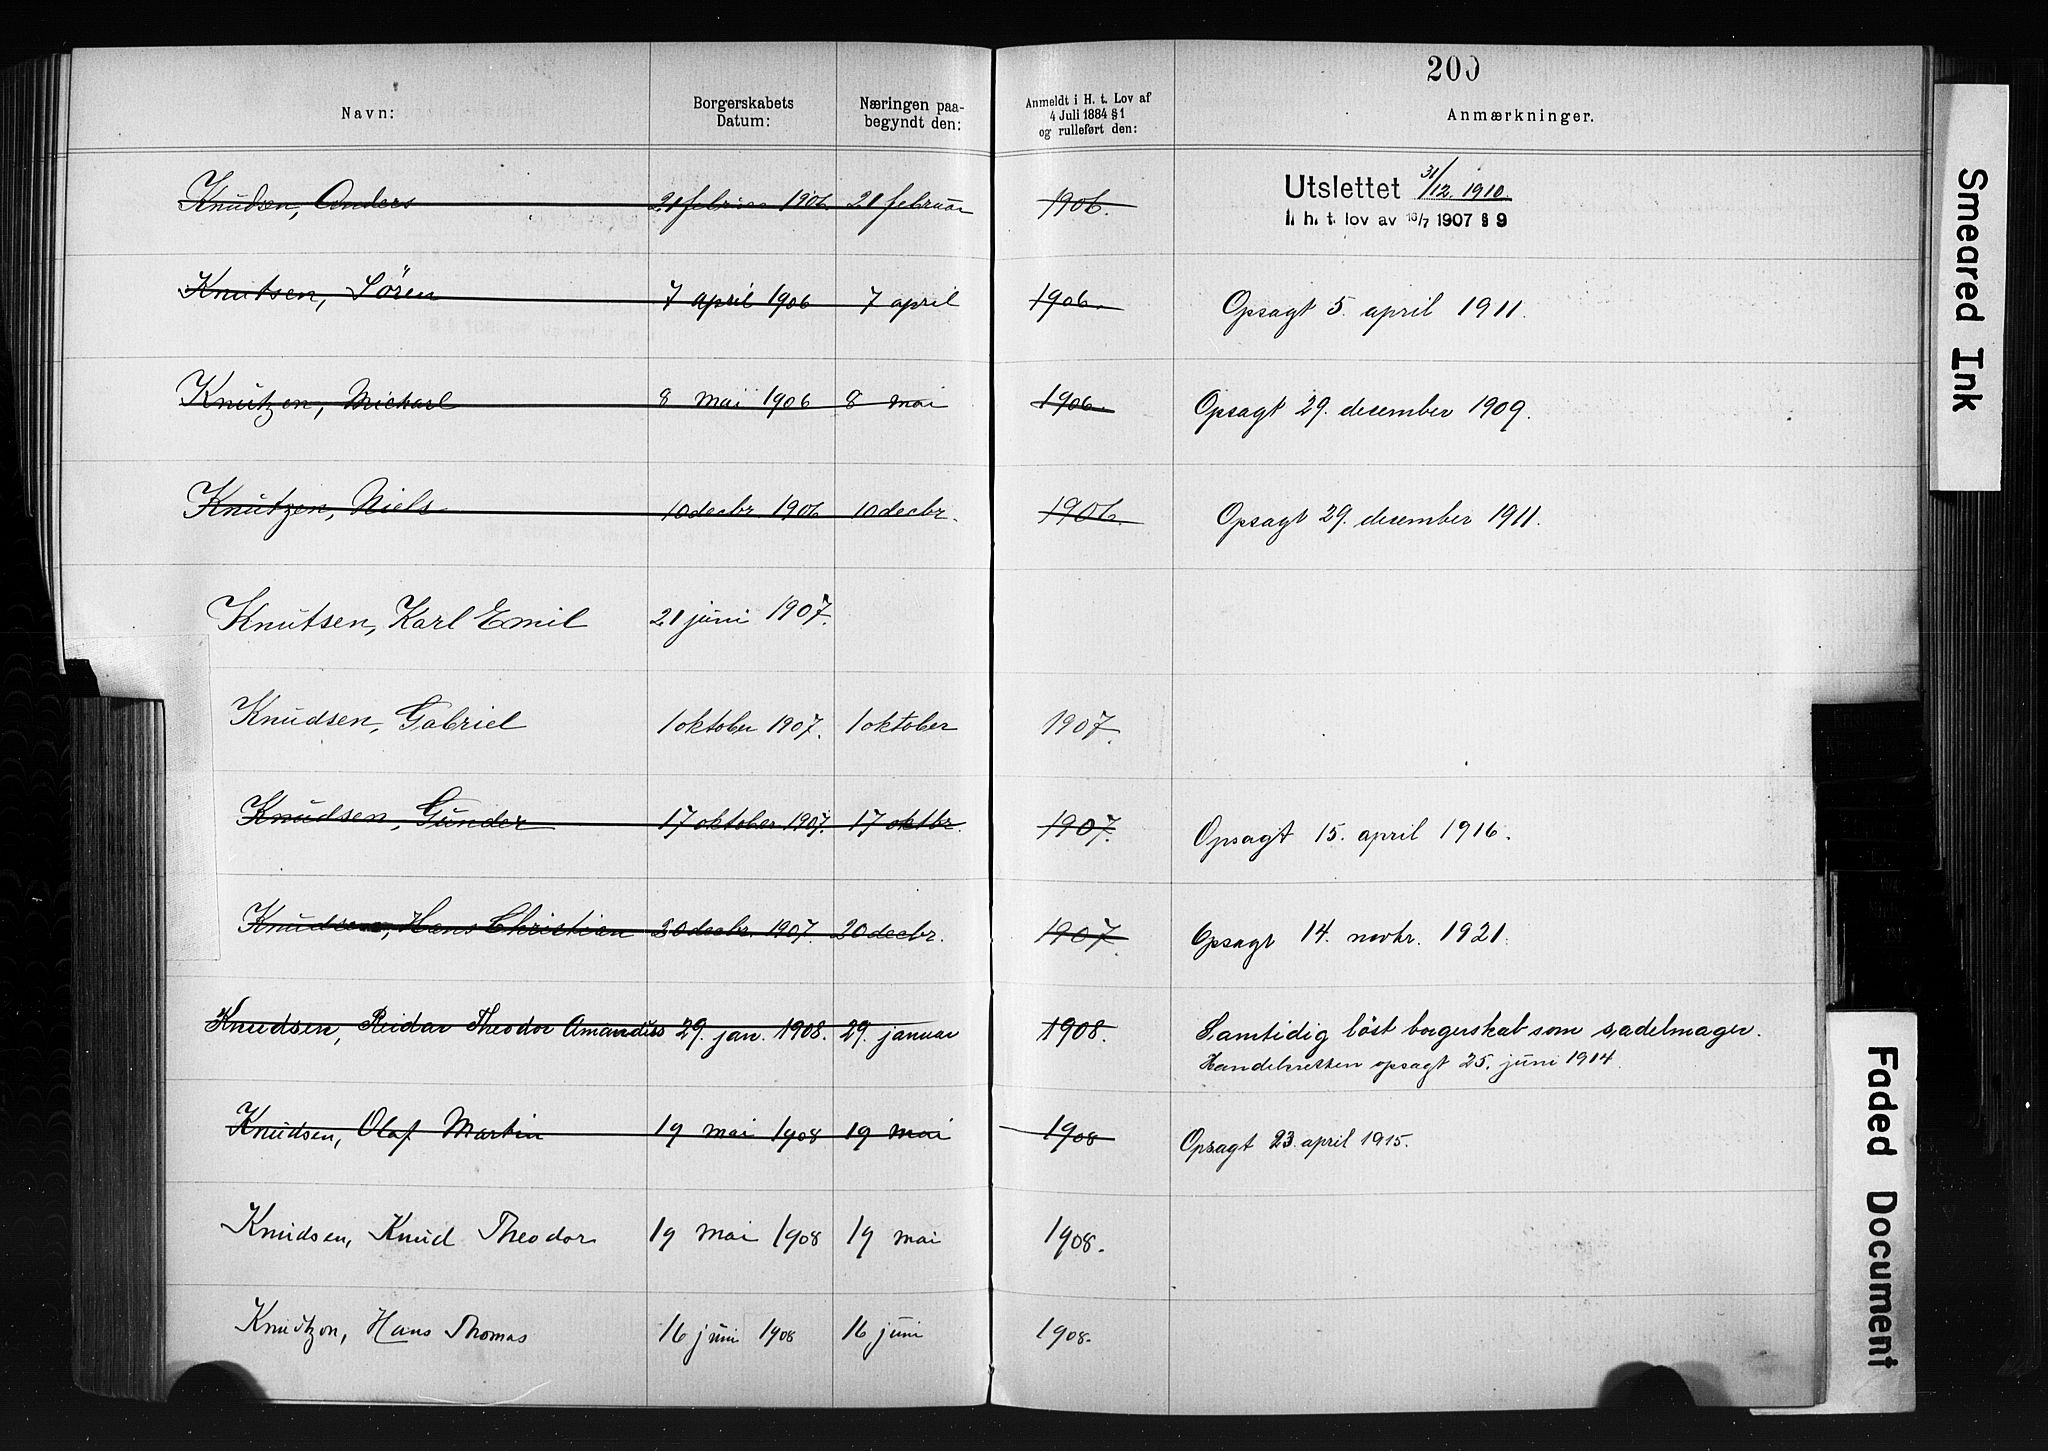 200
Navn: Borgerskabets Datum: Næringen paa-begyndt den: Anmeldt i H. t. Lov af 4 Juli 1884 § 1 og rulleført den: Anmærkninger.
Knudsen, Anders 21 februar 1906. 21 februar 1906. Utslettet 31/12. 1910.
I. h. t. lov av 16/7 1907 § 9
Knutsen, Sören 7 april 1906 7 april 1906. Opsagt 5. april 1911.
Knutzen, Michael 8 mai 1906 8 mai 1906. Opsagt 29. december 1909.
Knutzen, Niels 10 decbr. 1906 10 decbr. 1906. Opsagt 29. december 1911.
Knutsen, Karl Emil 21 juni 1907.
Knudsen, Gabriel 1 oktober 1907. 1 oktober 1907.
Knudsen, Gunder 17 oktober 1907. 17 oktbr. 1907. Opsagt 15. april 1916.
Knudsen, Hans Christian 20 decbr. 1907. 20 decbr. 1907. Opsagt 14. novbr. 1921.
Knudsen, Reidar Theodor Amandus 29. jan. 1908. 29. januar 1908. Samtidig löst borgerskab som sadelmager.
Handelsretten opsagt 25. juni 1914.
Knudsen, Olaf Martin 19 mai 1908 19 mai 1908 Opsagt 23. april 1915.
Knudsen, Knud Theodor 19 mai 1908 19 mai 1908.
Knutzon, Hans Thomas 16 juni 1908 16 juni 1908.
Smeared Ink
Faded Document